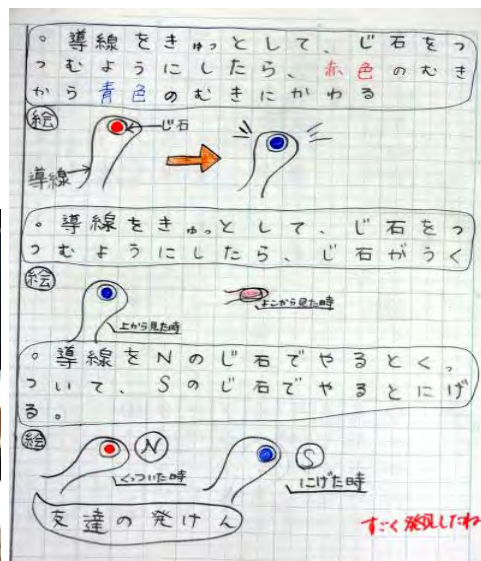 。導線をきゅっとして、じ石をつ
つむようにしたら、赤色のむき
から青色のむきにかわる
絵
じ石
導線
。導線をきゅっとして、じ石をつ
つむようにしたら、じ石がうく
絵
上から見た時
よこから見た時
。導線をNのじ石でやるとくっ
ついて、Sのじ石でやるとにげ
る。
絵
N
くっついた時
S
にげた時
友達の発けん
すごく発見したね